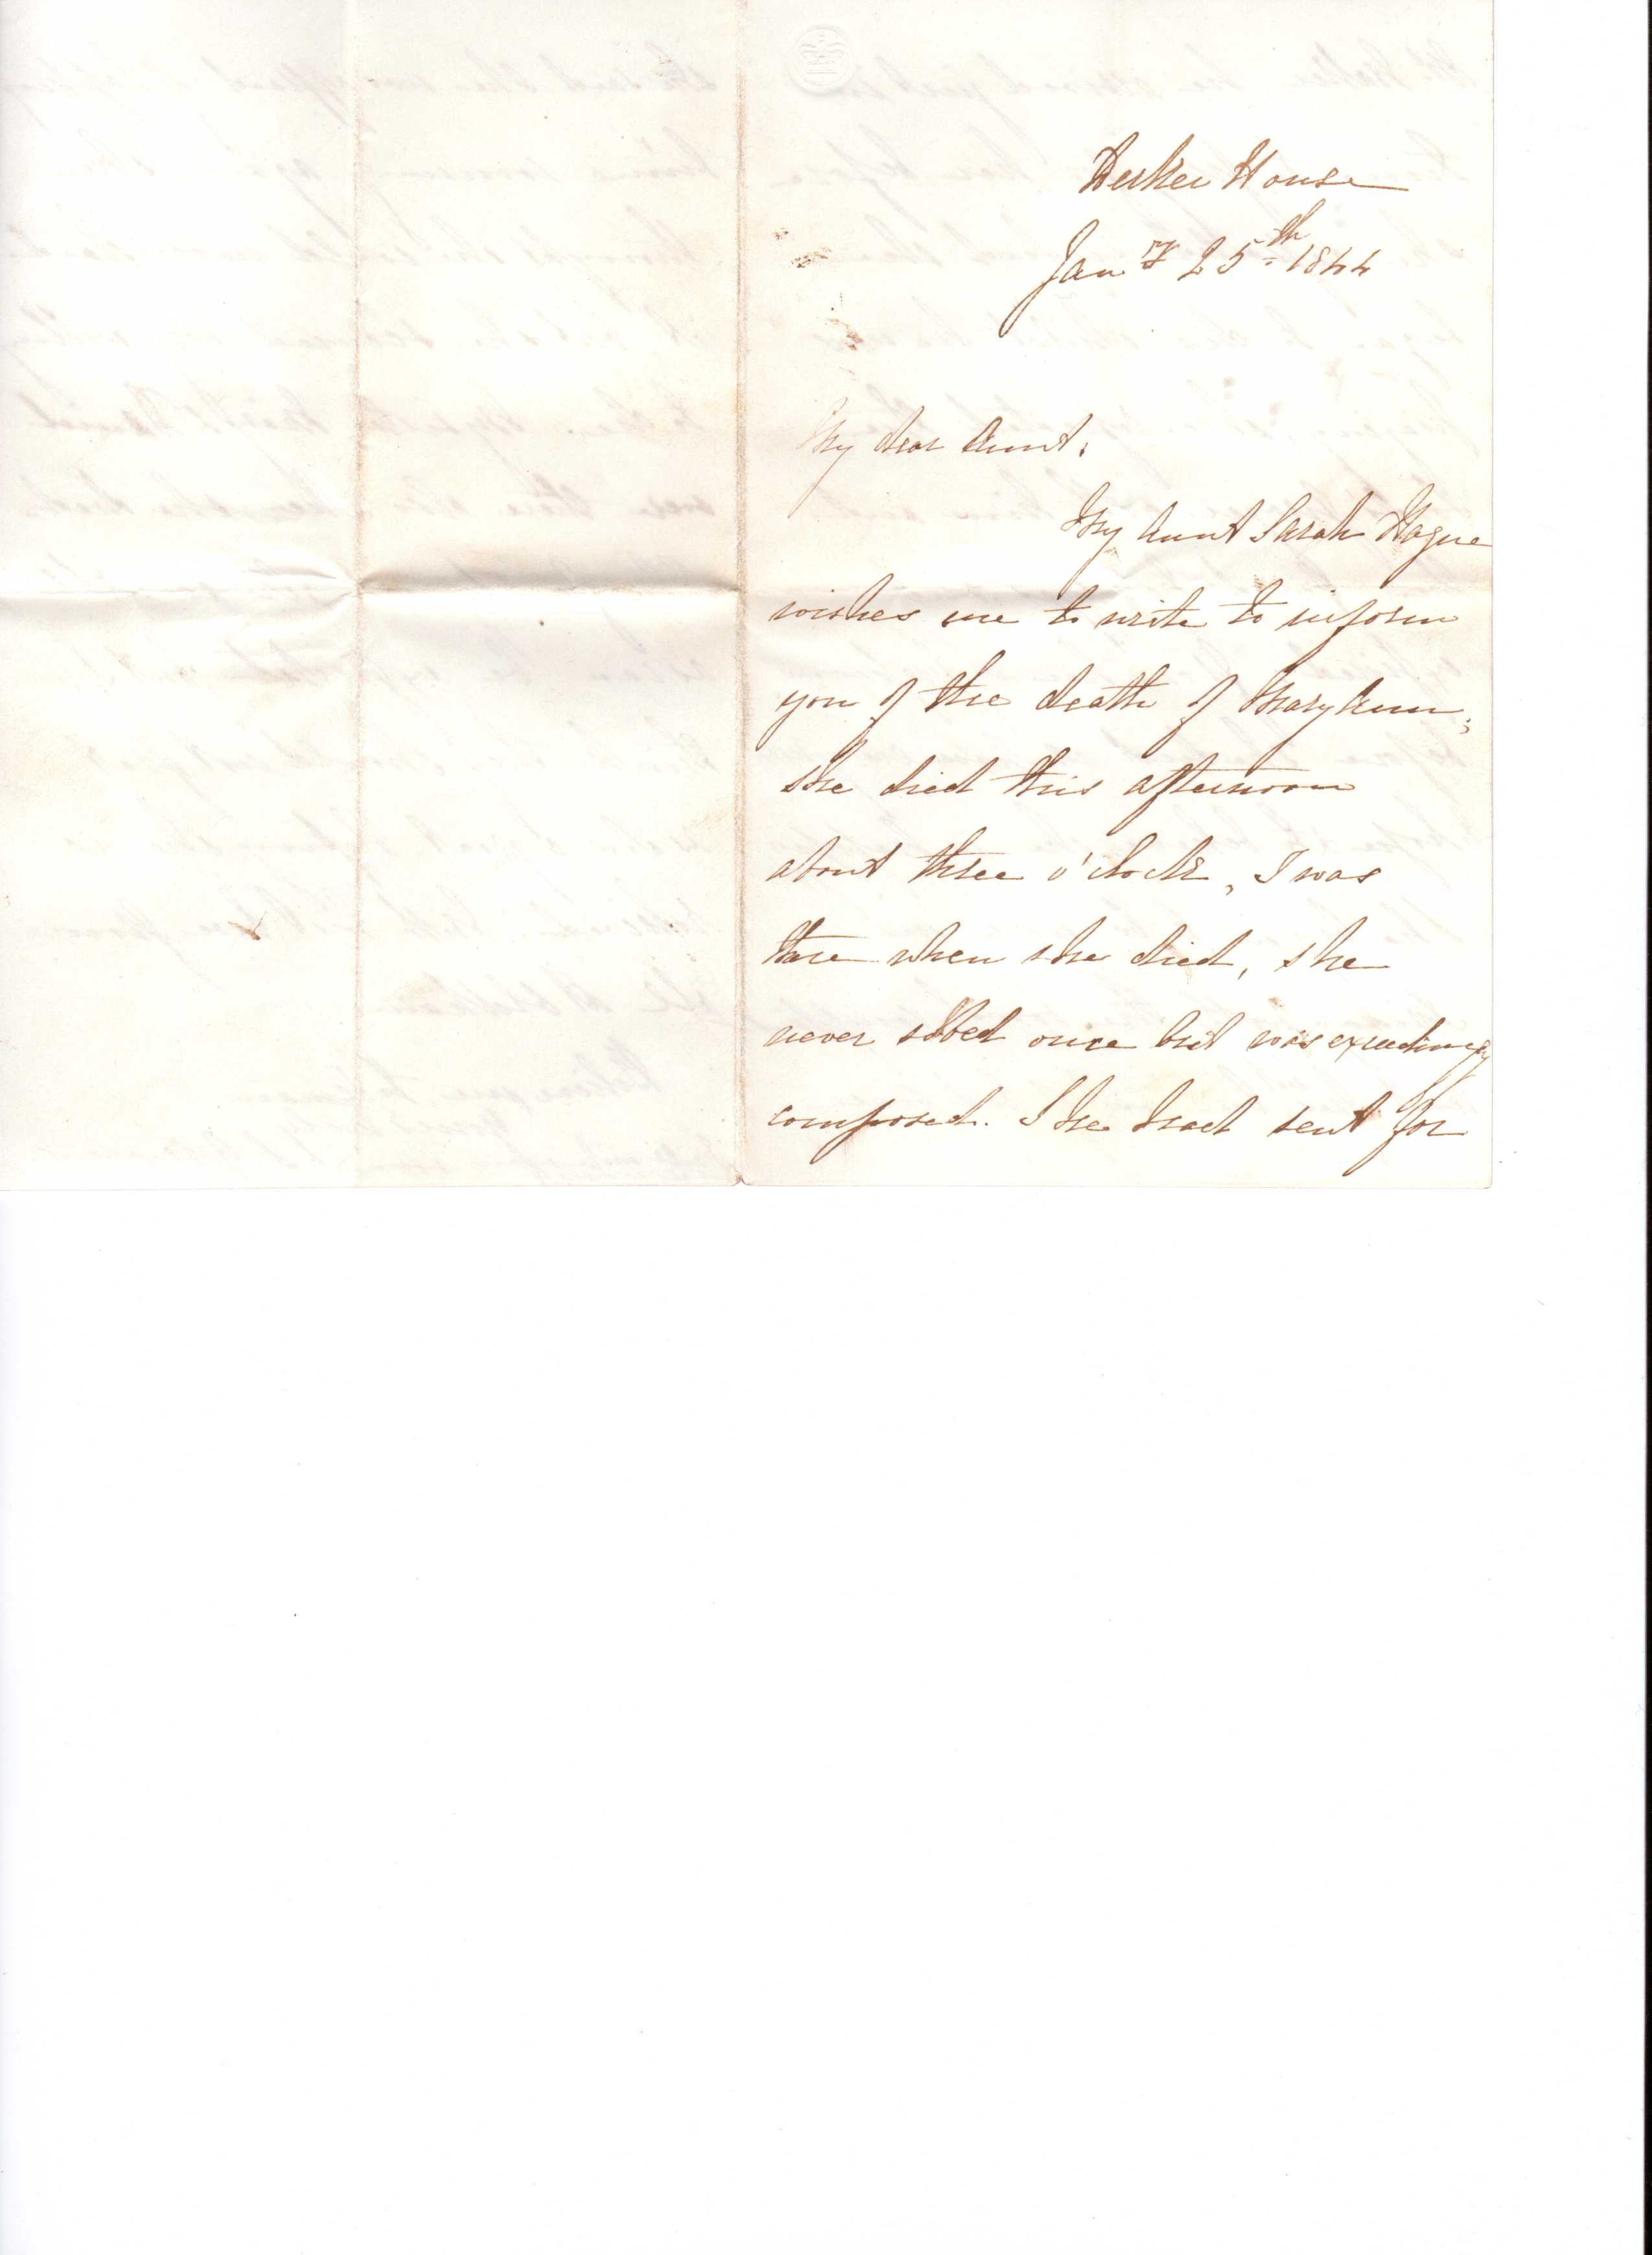 Derker House
Jany 25th 1844
My dear Aunt;
My Aunt Sarah Hague
wishes me to write to inform
you of the death of Mary Ann;
she died this afternoon
about three o'clock, I was
there when she died, she
never sobed once but was exceedingly
composed. She had sent for